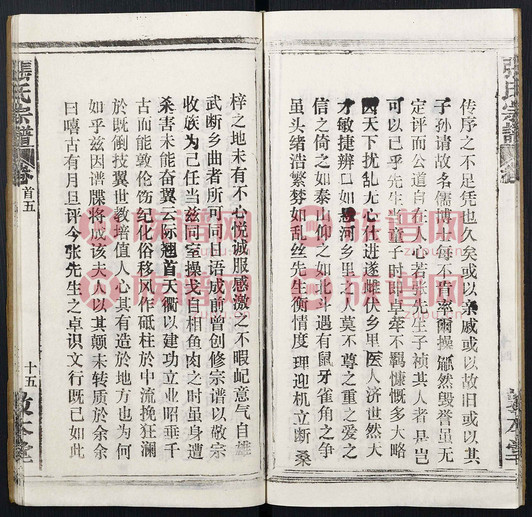 張氏宗譜
敦本堂
传序之不足凭也久矣或以亲戚或以故旧或以其
子孙请故名儒博士每不肯率尔操觚然毁誉虽无
定评而公道自在人心若张先生子祯其人者是岂
可以已乎先生童子时即卓荦不羁慷慨多大略
因天下扰乱无心仕进遂雌伏乡里医人济世然天
才敏捷辨口如悬河乡里之人莫不尊之重之爱之
信之倚之如泰仰之如北斗遇有鼠牙雀角之争
虽头绪浩繁棼如乱丝先生衡情度理迎机立断桑
梓之地未有不心悦诚服感激之不暇屺意气自雄
武断乡曲者所可同日语成前曾创修宗谱以敬宗
收族为己任当兹同室操戈自相鱼肉之时虽身遭
杀害未能奋翼云际翘首天衢以建功立业昭垂千
古而能敦伦饬纪化俗移风作砥柱於中流挽狂澜
於既倒技翼世教培值人心其有造於地方也为何
如乎兹因谱牒将成该夫人以其颠末转质於余余
曰嘻古有月旦评今张先生之卓识文行既已如此
張氏宗譜
卷首五
十五
敦本堂
族谱网
族谱网